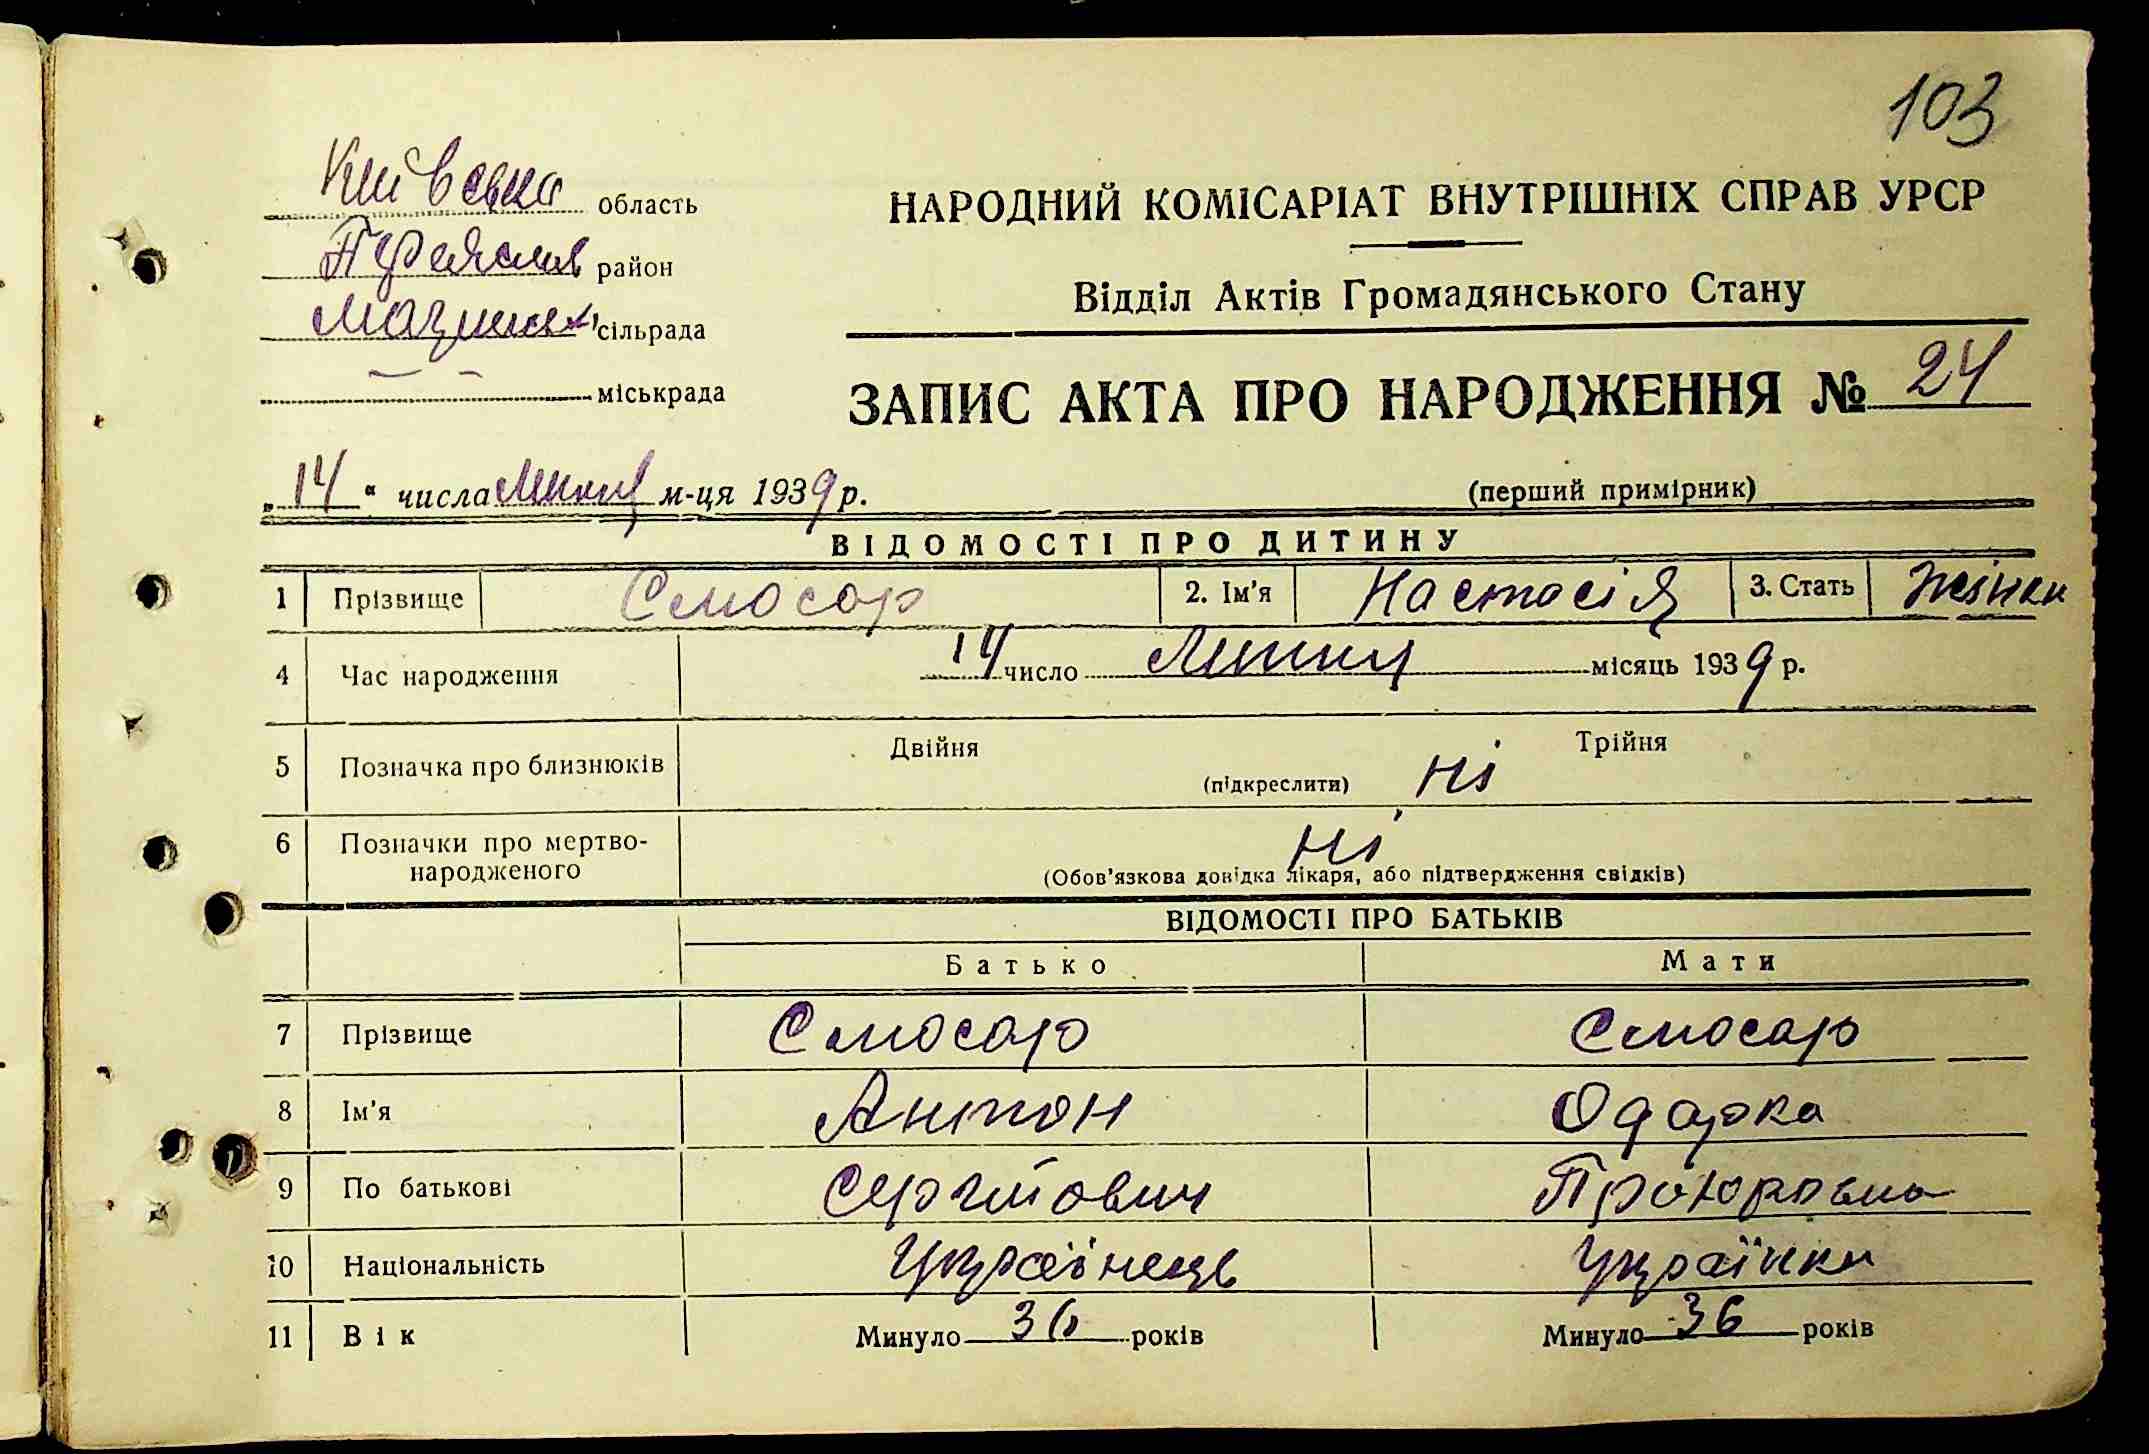 103
Київська область
Переяслав район
сільрада
міськрада
НАРОДНИЙ КОМІСАРІАТ ВНУТРІШНІХ СПРАВ УРСР
Відділ Актів Громадянського Стану
ЗАПИС АКТА ПРО НАРОДЖЕННЯ № 24
„14“ числа Липня м-ця 1939 р.
(перший примірник)
ВІДОМОСТІ ПРО ДИТИНУ
1 Прізвище Слюсар 2. Ім'я Настасія 3. Стать Жінки
4 Час народження 14 число Липня місяць 1939 р.
5 Позначка про близнюків Двійня Трійня
(підкреслити) ні
6 Позначки про мертво-
народженого ні
(Обов'язкова довідка лікаря, або підтвердження свідків)
ВІДОМОСТІ ПРО БАТЬКІВ
Батько Мати
7 Прізвище Слюсар Слюсар
8 Ім'я Антон Одарка
9 По батькові Сергійович
10 Національність Українець Українки
11 Вік Минуло 36 років Минуло 36 років